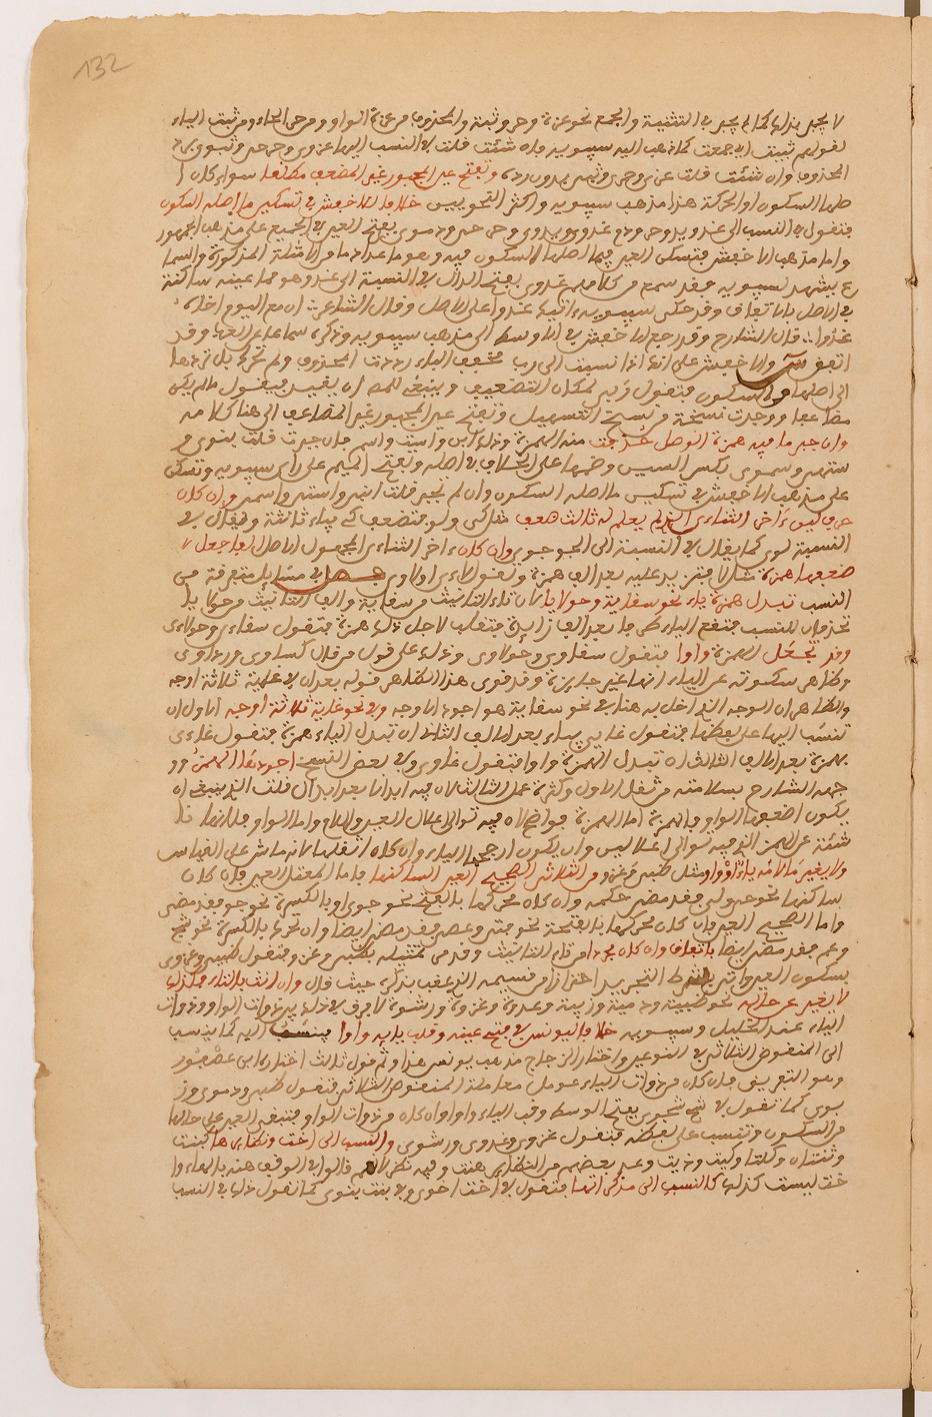 132
لا يجبر بذلك كما لم يجبر في التثنية والجمع نحو عزة وحر وثبة والمحذوف من عزة الواو ومن حر الحاء ومن ثبة الياء
لقولهم ثبيت اي جمعت كما ذهب اليه سيبويه وان شئت قلت في النسب اليها عزوي وحرحي وثبوي برد
المحذوف وان شئت قلت عزي وحري وثبي بدون رده وتفتح عين المجبور غير المضعف مطلقا سواء كان ا
صلها السكون او الحركة هذا مذهب سيبويه واكثر النحويين خلافا للاخفش في تسكين ما اصله السكون
فتقول في النسب الى غد ويد وحر ودم غدوي ويدوي وحرحي ودموي بفتح العين في الجميع على مذهب الجمهور
واما مذهب الاخفش فتسكن العين فيما اصلها السكون فيه وهو ما عدا دما من الامثلة المذكورة والسما
ع يشهد لسيبويه فقد سمع من كلامهم غدوي بفتح الدال في النسبة الى غد وهو مما عينه ساكنة
في الاصل باتفاق وقد حكى سيبويه اتيك غدوا على الاصل وقال الشاعر ان مع اليوم اخاه
غدوا قال الشارح وقد رجع الاخفش في الاوسط الى مذهب سيبويه وذكره سماعا عن العرب وقد
اتفق س والاخفش على انك اذا نسبت الى رب مخفف الباء رددت المحذوف ولم تحرك بل تردها
الى اصلها من السكون فتقول ربي لمكان التضعيف وينبغي للمص ان يقيد فيقول ما لم يكن
مضاعفا ووجدت نسخة من نسخ التسهيل وتفتح عين المجبور غير المضاعف الى هنا كلامه
وان جبر ما فيه همزة الوصل حذفت منه الهمزة وذلك ابن واست واسم فان جبرت قلت بنوي و
ستهي وسموي بكسر السين وضمها على الخلاف في اصله وبفتح الميم على راي سيبويه وتسكن
على مذهب الاخفش في تسكين ما اصله السكون وان لم تجبر قلت ابني واستي واسمي وان كان
حرف لين ءاخر الثنائي الذي لم يعلم له ثالث ضعف مثل كي ولو فتضعف كي بياء ثالثة وتقول في
النسبة لوي كما يقال في النسبة الى الجو جوي وان كان ءاخر الثنائي المجهول الاصل الفا جعل
ضعفها همزة مثل لا فتزيد عليه بعد الف همزة وتقول لائي او لاوي في مسايل متفرقة من
النسب تبدل همزة ياء نحو سقاية وحولايا لان تاء التانيث من سقاية والف التانيث من حولايا
تحذفان للنسب فتقع الياء طرفا بعد الف زايدة فتقلب لاجل ذلك همزة فتقول سقاءي وحولاءي
وقد تجعل الهمزة واوا فتقول سقاوي وحولاوي وذلك على قول من قال كساوي ورداوي
وظاهر سكوته عن الياء انها غير جايزة وقد قوى هذا الظاهر قوله بعد ان في غاية ثلاثة اوجه
والظاهر ان الوجه الذي اخل به هنا في نحو سقاية هو اجود الاوجه وفي نحو غاية ثلاثة اوجه الاول ان
تنسب اليها على لفظها فتقول غايي بياء بعد الالف الثاني ان تبدل الياء همزة فتقول غاءي
بهمزة بعد الالف الثالث ان تبدل الهمزة واوا فتقول غاوي وفي بعض النسخ اجودها الهمز وو
جهه الشارح بسلامته من ثقل الاول وكثرة عمل الثالث لان فيه ابدالا بعد ابدال قلت الذي ينبغي ان
يكون اضعفها الواو فالهمزة اما الهمزة فواضح لان فيه توالي اعلال العين واللام واما الواو فلانها نا
شئة عن الهمز الذي فيه توالي اعلالين وان يكون ارجحها الياء وان كان اثقلها لانه ماش على القياس
ولا يغير ما لامه ياء او واو مثل ظبي وغزو من الثلاثي الصحيح العين الساكنها فاما المعتل العين فان كان
ساكنها نحو حي ولي فقد مضى حكمه وان كان محركها بالفتح نحو جوى او بالكسرة نحو جو فقد مضى
واما الصحيح العين فان كان محركها بالفتحة نحو فتى وعصى فقد مضى ايضا وان تحرك بالكسرة نحو شج
وعم فقد مضى ايضا باتفاق وان كان مجردا من تاء التانيث وقد مر تمثيله بظبي وغزو فتقول ظبيي وغزوي
بسكون العين واتى بشرط التجريد احترازا من قسيمه الذي عقب بذكره حيث قال وان انث بالتاء فكذلك
لا يغير عن حاله نحو ظبية ودمية وزبية وعدوة وغزوة ورشوة لا فرق في ذلك بين ذوات الواو وذوات
الياء عند الخليل وسيبويه خلافا ليونس في فتح عينه وقلب يايه واوا فينسب اليه كما ينسب
الى المنقوص الثلاثي في النوعين واختار الزجاج مذهب يونس هذا وثم قول ثالث اختاره ابن عصفور
وهو التفريق فان كان من ذوات الياء عومل معاملة المنقوص الثلاثي فتقول ظبوي ودموي وز
بوي كما تقول في شج شجوي بفتح الوسط وقلب الياء واوا وان كان من ذوات الواو فتبقى العين على حالها
من السكون وتنسب على لفظه فتقول غزوي وعدوي ورشوي والنسب الى اخت ونظايرها كبنت
وثنتان وكلتا وكيت وذيت وعد بعضهم من النظاير هنت وفيه نظر لانهم قالوا في الوقف هنه بالهاء وا
خت ليست كذلك كالنسب الى مذكراتها فتقول في اخت اخوي وفي بنت بنوي كما تقول ذلك في النسب